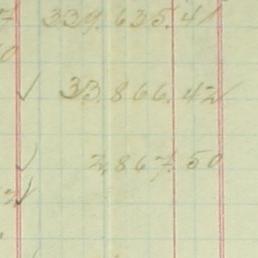 339.635.41
33.866.42
2,867.50